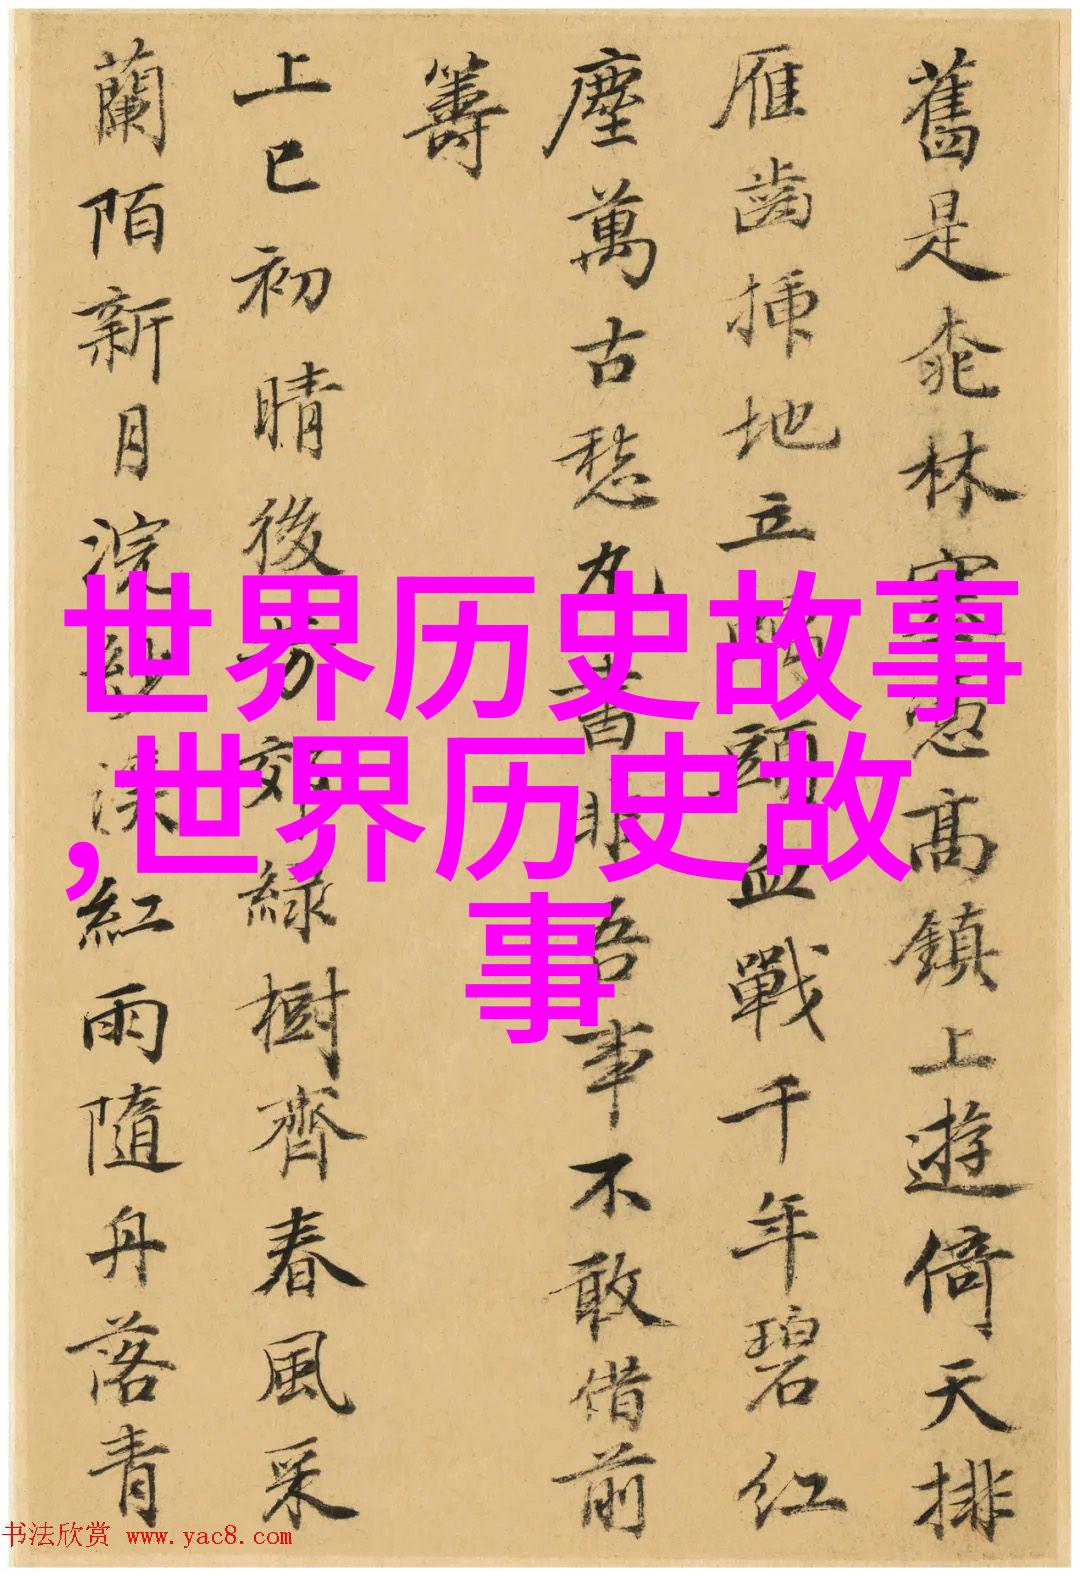 舊是桃林塞惡高鎮上遊倚天排
雁齒揷地立頭血戰千年碧紅
塵萬古愁丸書非吾事不敢借前
籌
上巳初晴後芳郊綠樹齊春風采
蘭陌新月浣紗溪紅雨隨舟落青
世界历史故事
,世界历史故
事
书法欣赏 www.yac8.com